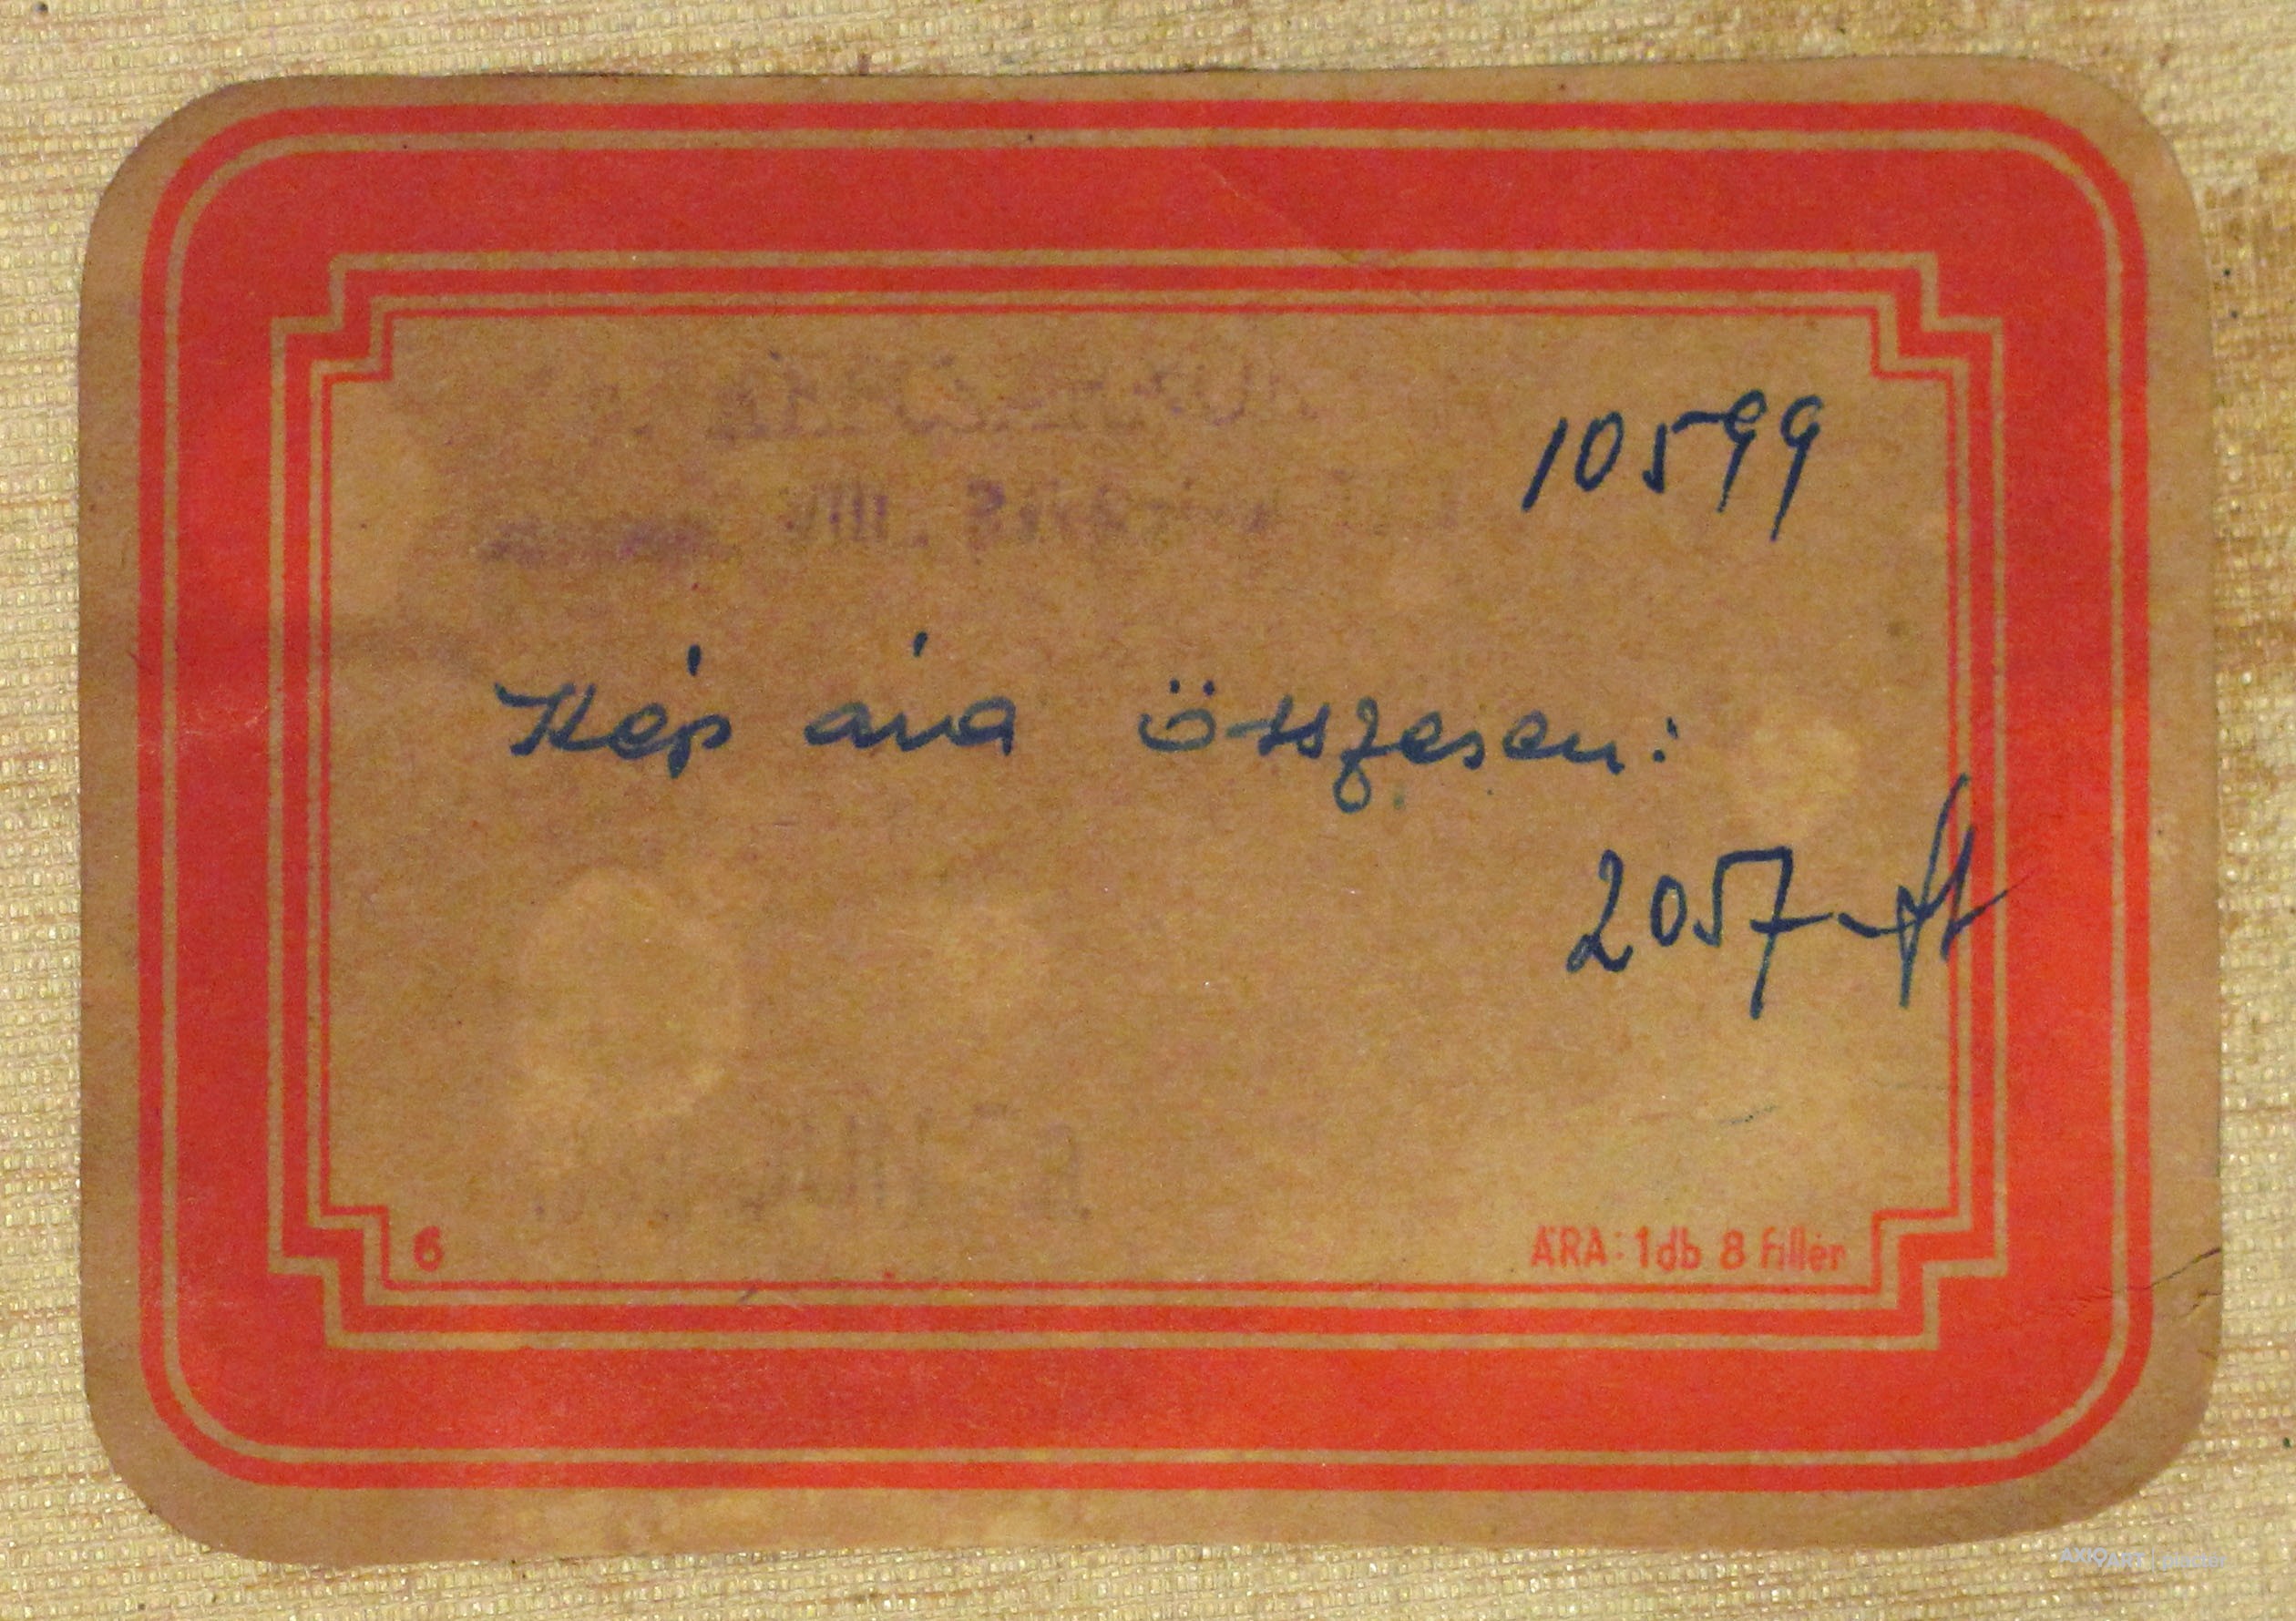 10599
Kép ára összesen:
2057 - Ft
6
ÁRA: 1 db 8 fillér
AXIOART